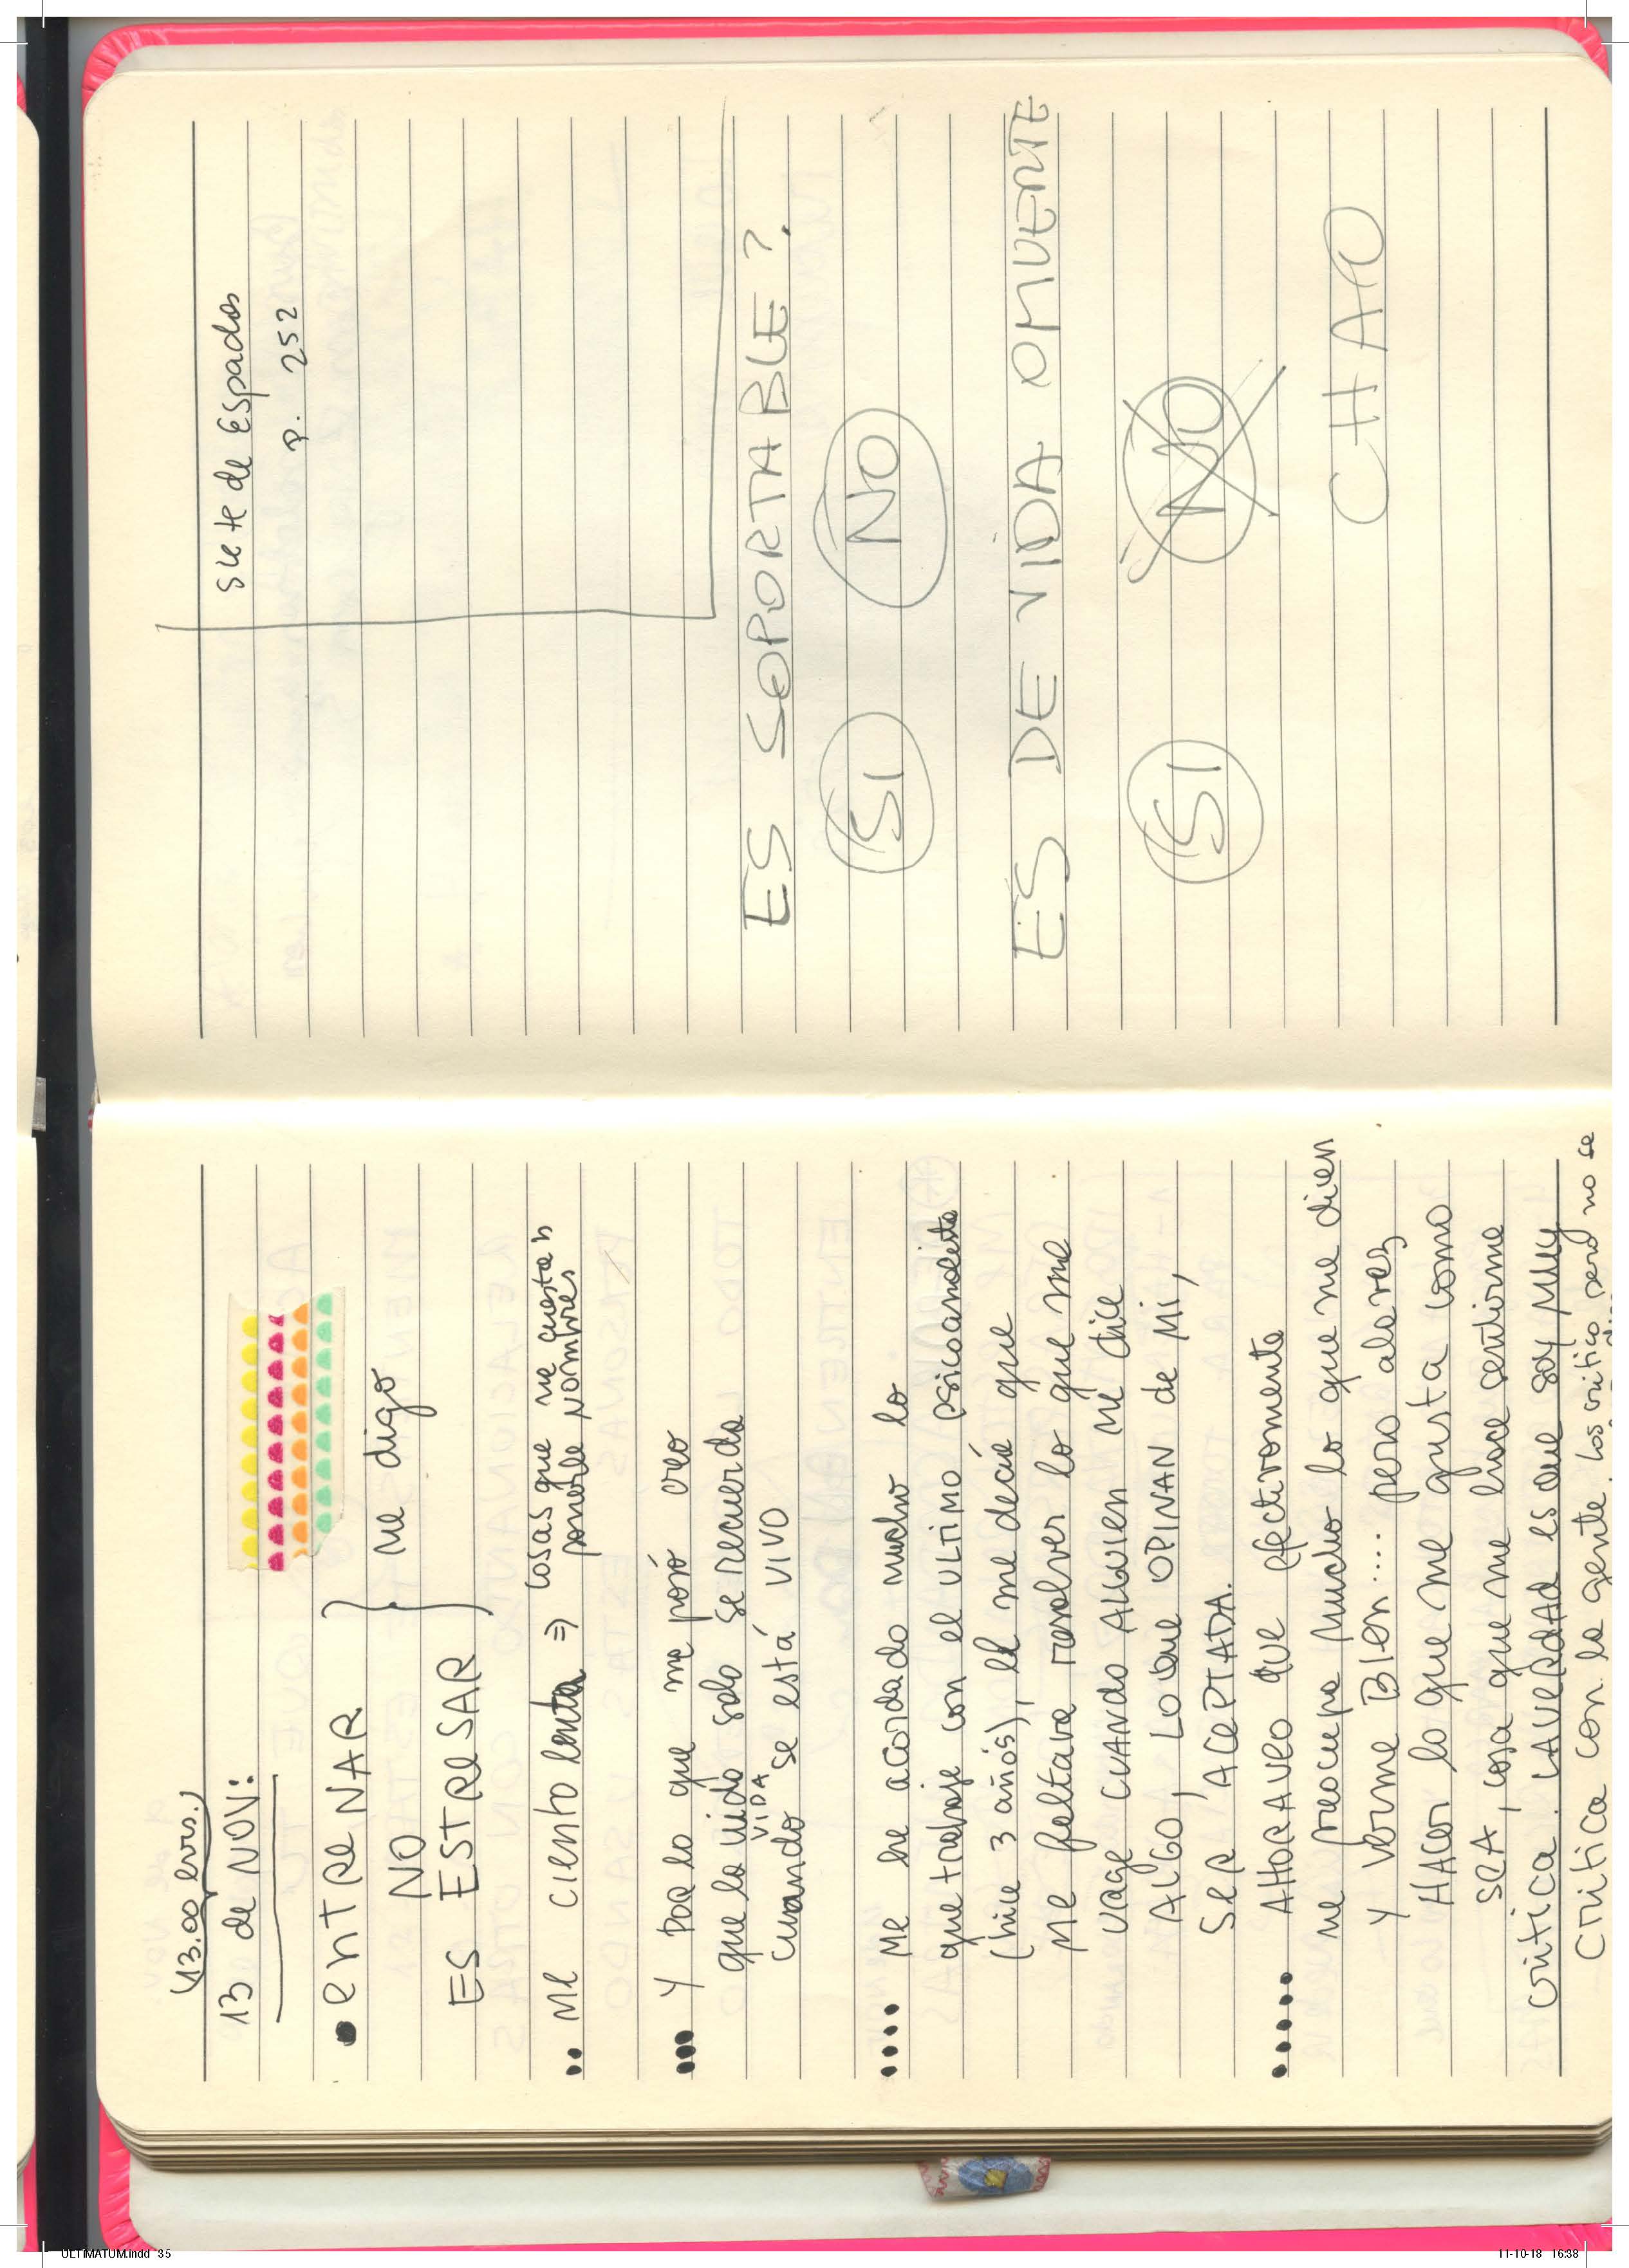 (13.00 hrs.)
13 de NOV:
• ENTRENAR
NO
ES ESTRESAR
me digo
•• Me ciento lenta ⇒ cosas que me cuesta
ponerle nombres
••• Y por lo que me paró creo
que la vida solo se recuerda
VIDA
cuando se está vivo
•••• Me he acordado mucho lo
que trabaje con el ULTIMO psicoanalista
(hice 3 años), el me decía que
me faltava resolver lo que me
urage CUANDO ALGUIEN me dice
ALGO, LO QUE OPINAN de Mi,
Ser ACEPTADA.
••••• AHORA VEO que efectivamente
me preocupa mucho lo que me dicen
y verme BIEN.... pero alavez
HACER lo que me gusta como
SEA, cosa que me hace sentirme
critica. LA VERDAD es que soy MUY
Critica con la gente. Los critico pero no se
Siete de Espadas
p. 252
ES SOPORTABLE?
SI NO
ES DE VIDA O MUERTE
SI NO
CHAO
ULTIMATUM.indd 35
11-10-18 16:38